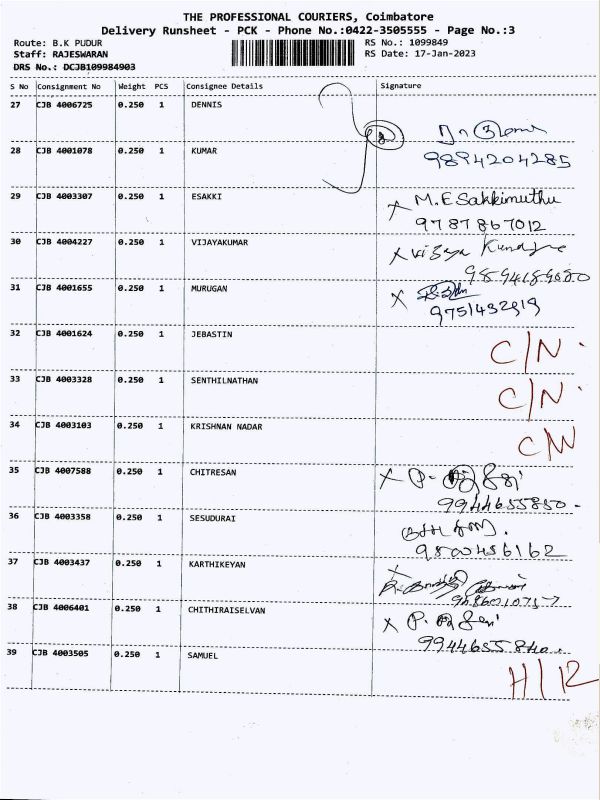 THE PROFESSIONAL COURIERS, Coimbatore
Delivery Runsheet - PCK - Phone No.:0422-3505555 - Page No.:3
Route: B.K PUDUR RS No.: 1099849
Staff: RAJESWARAN RS Date: 17-Jan-2023
DRS No.: DCJB109984903
S No Consignment No Weight PCS Consignee Details Signature
27 CJB 4006725 0.250 1 DENNIS
28 CJB 4001078 0.250 1 KUMAR
9894204285
29 CJB 4003307 0.250 1 ESAKKI X M.E Sakkimuthu
9787867012
30 CJB 4004227 0.250 1 VIJAYAKUMAR X
31 CJB 4001655 0.250 1 MURUGAN X
9751432919
32 CJB 4001624 0.250 1 JEBASTIN C/N.
33 CJB 4003328 0.250 1 SENTHILNATHAN C/N.
34 CJB 4003103 0.250 1 KRISHNAN NADAR C/N
35 CJB 4007588 0.250 1 CHITRESAN X P.
9944655850
36 CJB 4003358 0.250 1 SESUDURAI
37 CJB 4003437 0.250 1 KARTHIKEYAN X
38 CJB 4006401 0.250 1 CHITHIRAISELVAN X P.
39 CJB 4003505 0.250 1 SAMUEL H/R